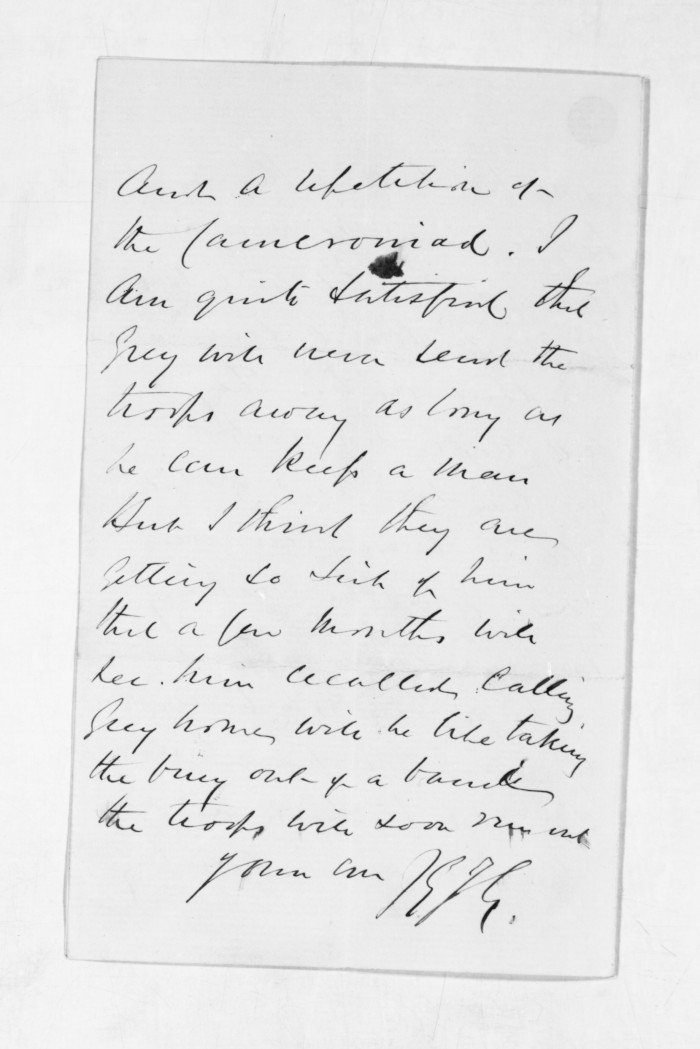 and a repetition of
the Cameroniad. I
am quite satisfied that
Grey will never send the
troops away as long as
he can keep a man
But I think they are
getting so sick of him
that a few months will
see him recalled. Calling
Grey home will be like taking
the bung out of a barrel
the troops will soon run out
yours am